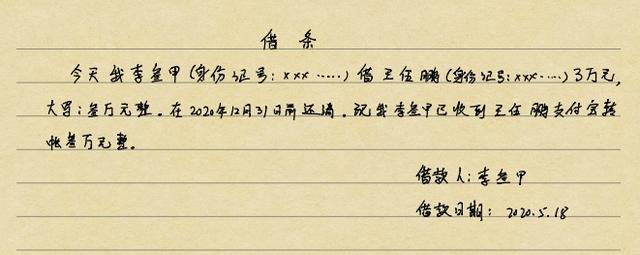 借条
今天我李叁甲(身份证号:xxx……)借王伍鹏(身份证号:xxx……)3万元,
大写:叁万元整。在2020年12月31日前还清。现我李叁甲已收到王伍鹏支付宝转
帐叁万元整。
借款人:李叁甲
借款日期:2020.5.18